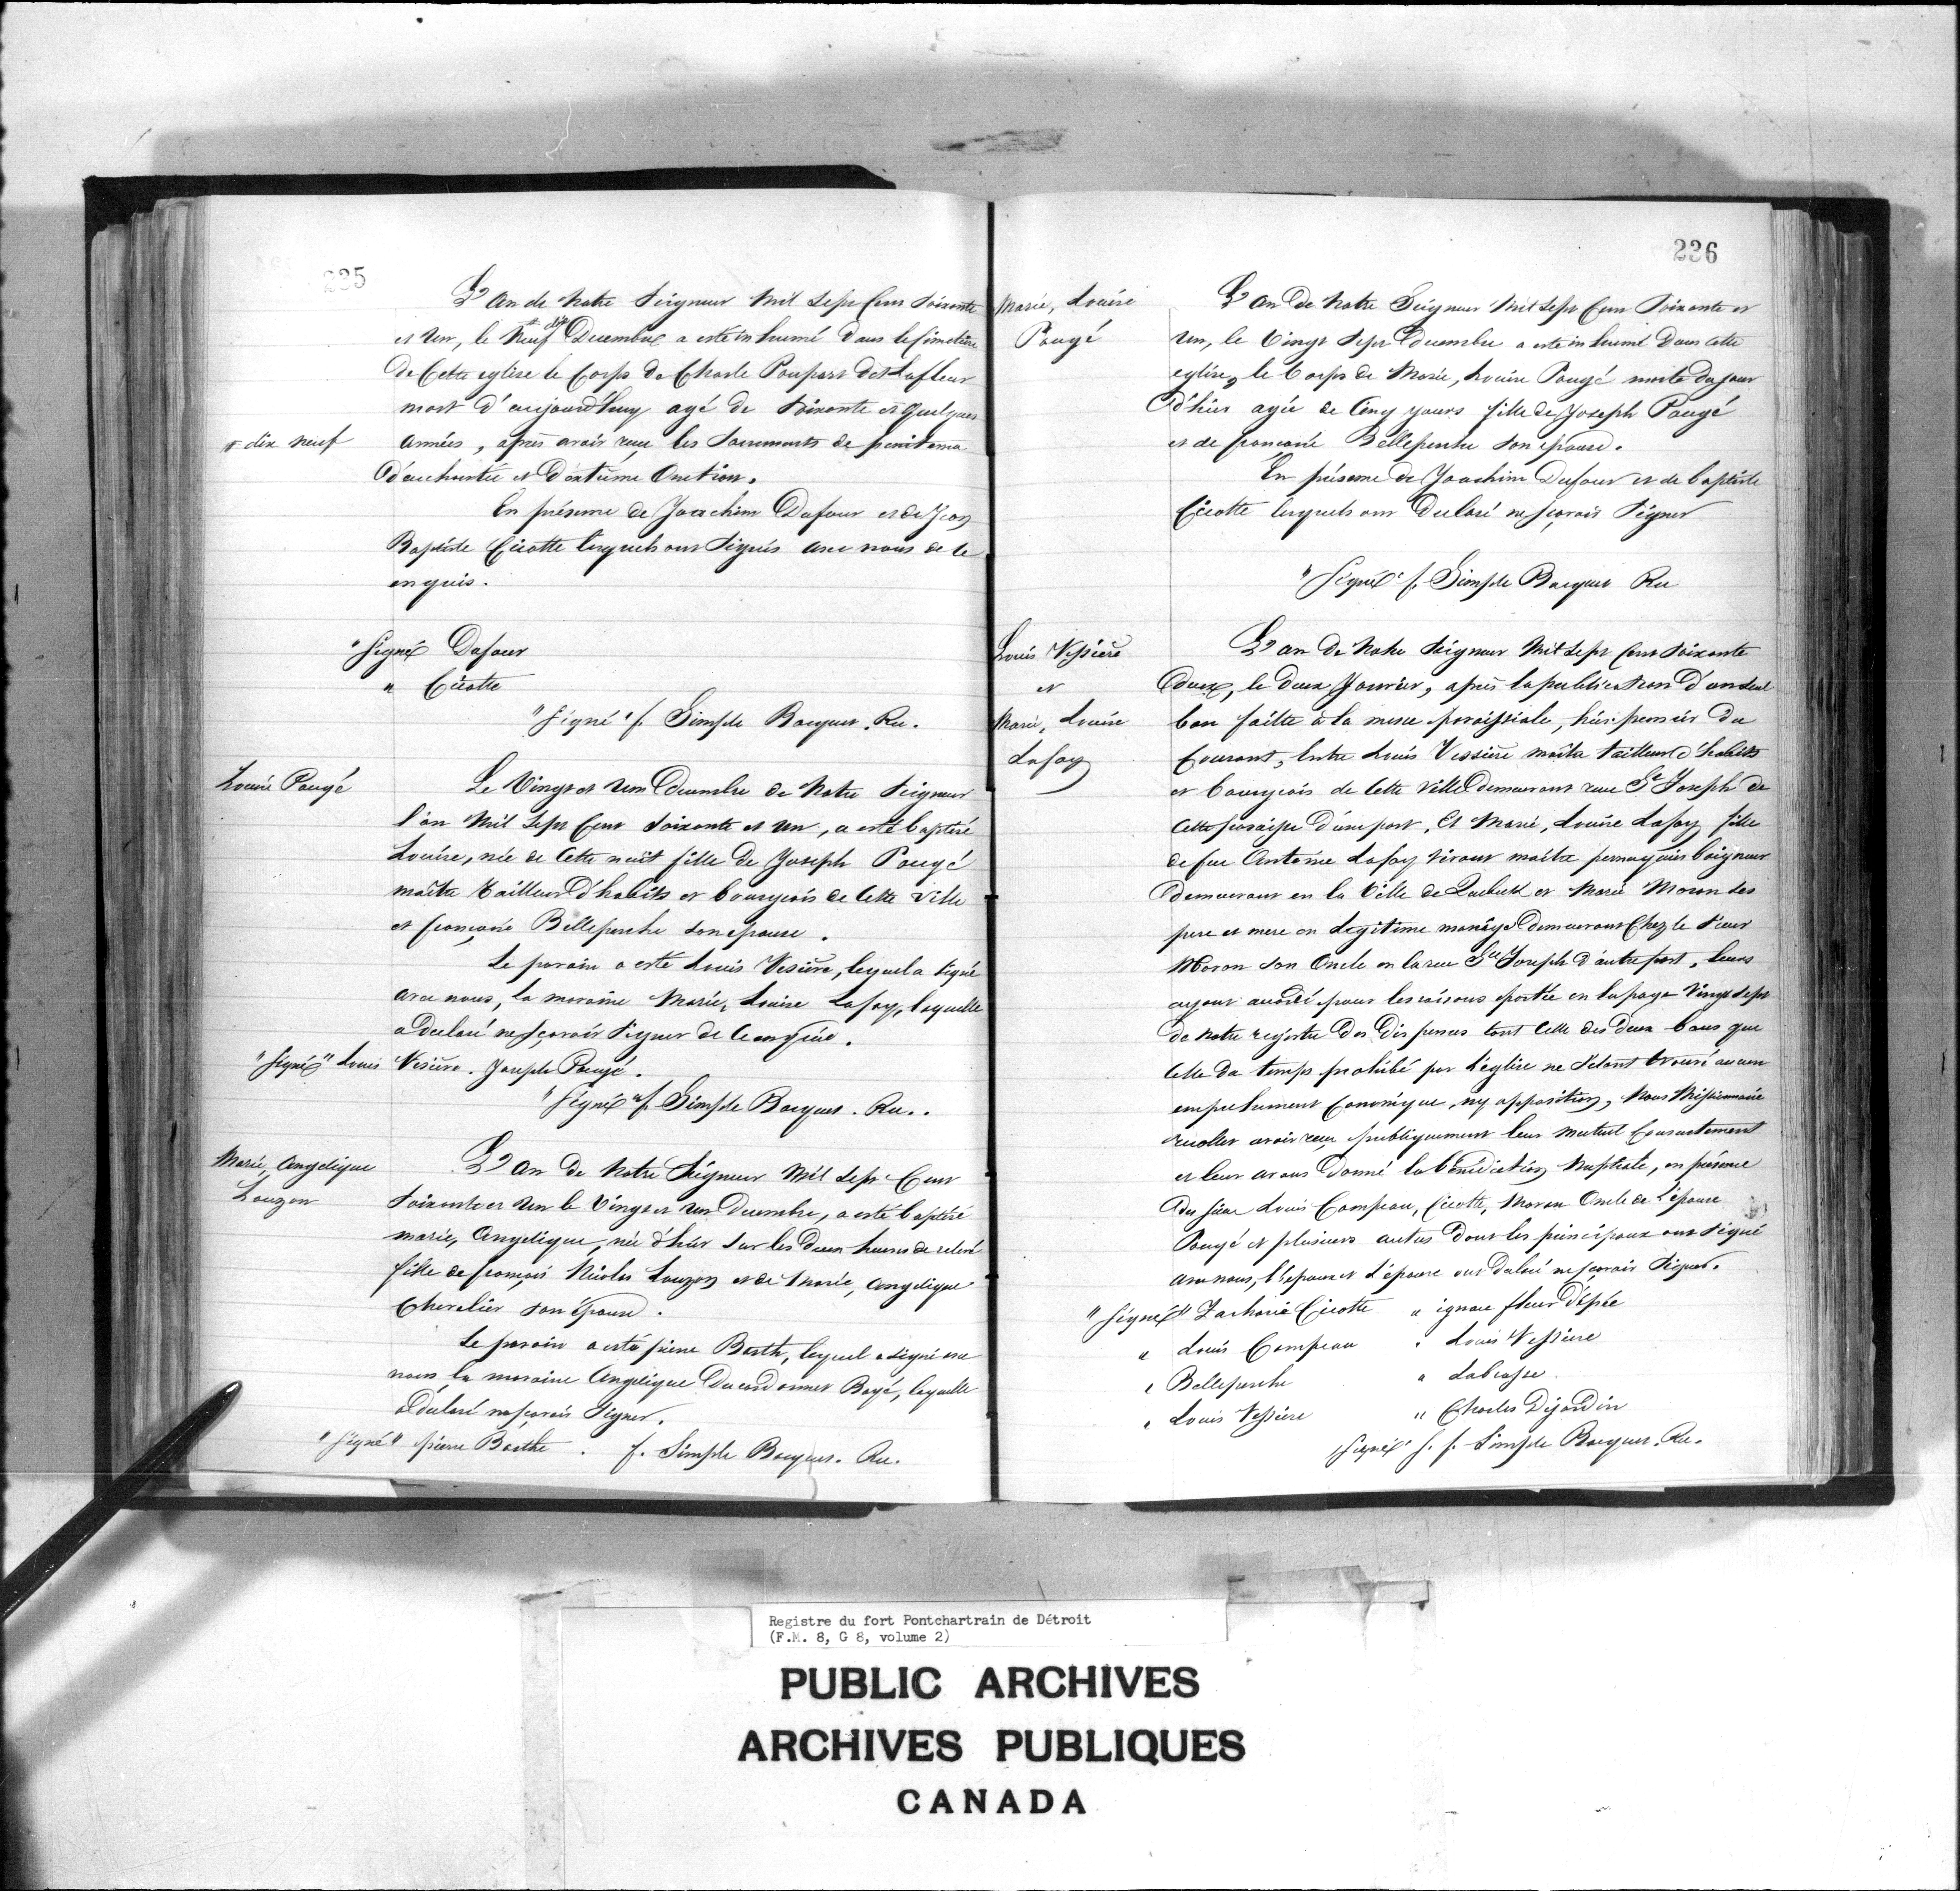 235
L'an de Notre Seigneur Mil Sept Cent Soixante
et Un, le # Neuf Decembre a esté inhumé dans le Cimetiere
de Cette eglise le Corps de Charle Poupart dit Lafleur
mort d'aujourd'huy agé de Soixante et quelques
# dix neuf
années, après avoir reçu les Sacrements de penitence
d'eucharistie et d'extrême Onction.
En présence de Joachim Dufour et de Jean
Baptiste Cicotte lesquels ont Signés avec nous de ce
enquis.
"Signé Dufour
" Cicotte
"Signé" f. Simple Bocquet. Rec.
Louise Pougé
Le Vingt et Un Decembre de Notre Seigneur
l'an Mil Sept Cent Soixante et Un, a esté baptisé
Louise, née de Cette nuit fille de Joseph Pougé
maitre tailleur d'habits et bourgeois de Cette Ville
et françoise Belleperche son epouse.
Le parain a esté Louis Vesiere, lequel a Signé
avec nous, la maraine Marie, Louise Lafoy, laquelle
a declaré ne sçavoir Signer de Ce enquise.
"Signé" Louis Vesiere. Joseph Pougé.
"Signé" f. Simple Bocquet. Rec.
Marie, Angelique
Louzon
L'an de Notre Seigneur Mil Sept Cent
Soixante et Un le Vingt et Un Decembre, a esté baptisé
marie, Angelique, née d'hier sur les Deux heures de relevé
fille de françois Nicolas Louzon et de Marie, Angelique
Chevalier son épouse.
Le parain a esté pierre Barth, lequel a signé avec
nous la maraine Angelique Ducardonnet Bayé, laquelle
a declaré ne sçavoir Signer.
"Signé" pierre Barthe. f. Simple Bocquet. Rec.
236
Marie, Louise
Pougé
L'an de Notre Seigneur Mil Sept Cent Soixante et
Un, le Vingt Sept Decembre a esté inhumé dans cette
eglise, le Corps de Marie, Louise Pougé morte du jour
d'hier agée de Cinq jours fille de Joseph Pougé
et de françoise Belleperche son epouse.
En présence de Joachim Dufour et de baptiste
Cicotte lesquels ont Declaré ne sçavoir Signer
"Signé" f. Simple Bocquet Rec
Louis Vessiere
et
Marie, Louise
Lafoy
L'an de Notre Seigneur Mil Sept Cent Soixante
deux, le deux Janvier, après la publication d'un seul
ban faitte à la messe paroissiale, hier premier du
Courant, Entre Louis Vessiere maitre tailleur d'habits
et bourgeois de Cette Ville demeurant rue St Joseph de
Cette paroisse d'une part, Et Marie, Louise Lafoy fille
de feu Antoine Lafoy vivant maitre perruquier baigneur
demeurant en la Ville de et Marie Moran Ses
pere et mere en légitime mariage demeurant Chez le Sieur
Moran son Oncle en la rue Ste Joseph d'autre part. leurs
ayant accordé pour les raisons portée en la page Vingt Sept
de notre registre des Dispenses tant Celle des deux bans que
Celle du temps prohibé par l'église ne s'étant trouvé aucun
empechement Canonique, ny opposition, Nous Missionnaire
recollet avoir reçu publiquement leur mutuel Consentement
et leur avons donné la benediction Nuptiale, en présence
du sieur Louis Campeau, Cicotte, Moran Oncle de l'épouse
Pougé et plusieurs autres dont les principaux ont Signé
avec nous, l'epoux et l'épouse ont declaré ne sçavoir Signer.
"Signé" Zacharie Cicotte " ignace fleur d'épée
" Louis Campeau " Louis Vessiere
" Belleperche " Labrosse.
" Louis Vessiere " Charles Dijardin
Signé" f. f. Simple Bocquet. Rec.
Registre du fort Pontchartrain de Détroit
(F.M. 8, G 8, volume 2)
PUBLIC ARCHIVES
ARCHIVES PUBLIQUES
CANADA